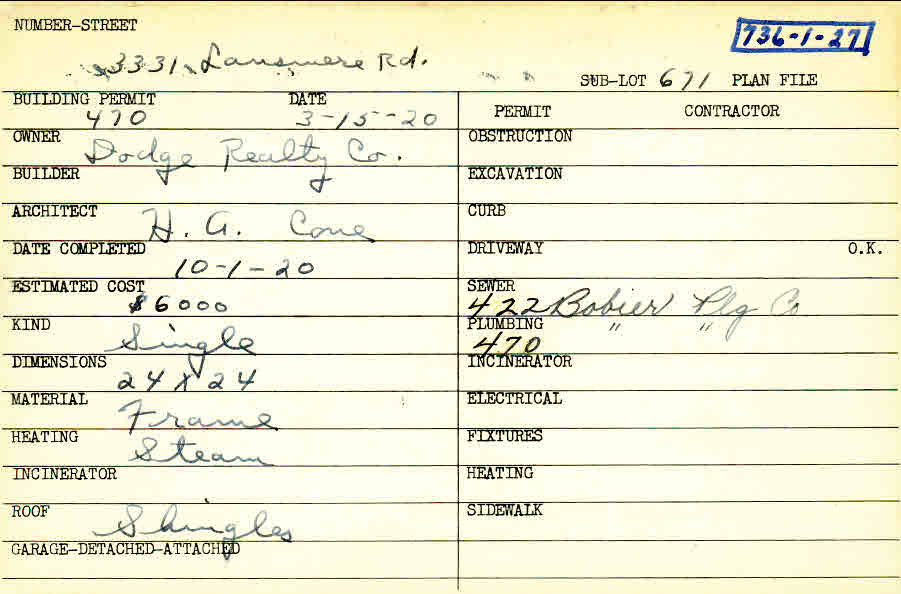 NUMBER-STREET
736-1-27
3331 Lansmere Rd.
SUB-LOT 671 PLAN FILE
BUILDING PERMIT DATE
470 3-15-20
PERMIT CONTRACTOR
OWNER
Dodge Realty Co.
OBSTRUCTION
BUILDER
EXCAVATION
ARCHITECT
H. A. Cone
CURB
DATE COMPLETED
10-1-20
DRIVEWAY O.K.
ESTIMATED COST
$6000
SEWER
422 Bobier Plg Co
KIND
Single
PLUMBING " "
470
DIMENSIONS
24 x 24
INCINERATOR
MATERIAL
Frame
ELECTRICAL
HEATING
Steam
FIXTURES
INCINERATOR
HEATING
ROOF
Shingles
SIDEWALK
GARAGE-DETACHED-ATTACHED